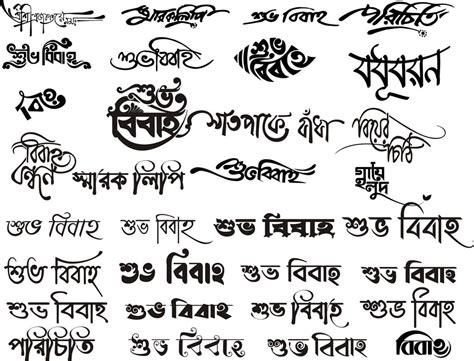 শুভ বিবাহ
স্মারকলিপি
পরিচিতি
শুভ বিবাহ
শুভবিবাহ
শুভ বিবাহ
বধূবরন
শুভ
বিবাহ
সাতপাকে বাঁধা
বিয়ের
চিঠি
বিবাহ
বন্ধন
স্মারক লিপি
শুভবিবাহ
গায়ে
হলুদ
শুভ বিবাহ শুভ বিবাহ শুভ বিবাহ শুভ বিবাহ
শুভ বিবাহ শুভ বিবাহ শুভ বিবাহ শুভ বিবাহ
শুভ বিবাহ শুভ বিবাহ শুভ বিবাহ শুভ বিবাহ
পরিচিতি শুভ বিবাহ শুভ বিবাহ শুভ বিবাহ